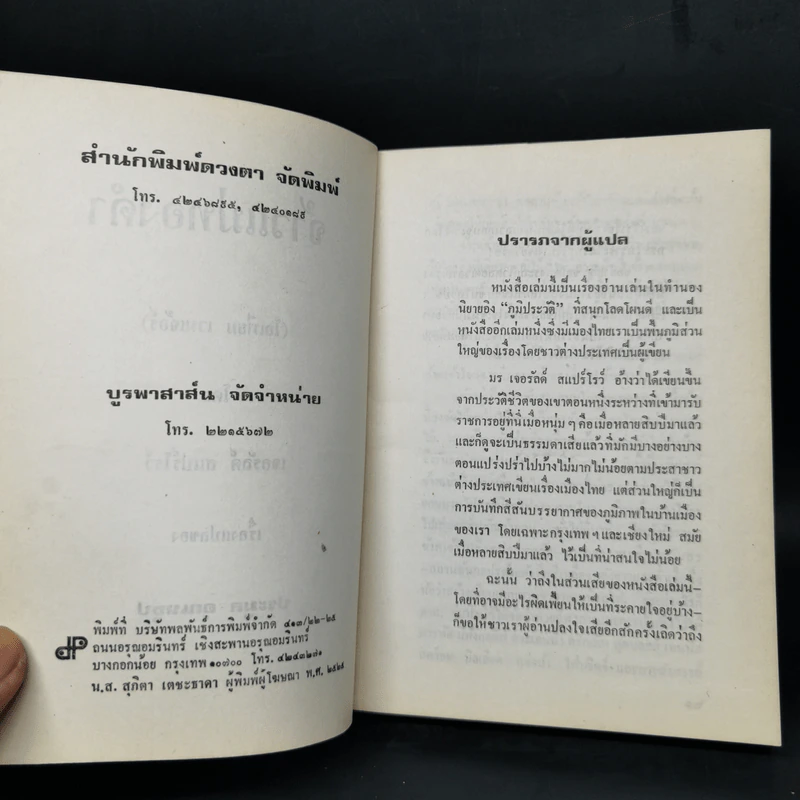 สำนักพิมพ์ดวงตา จัดพิมพ์
โทร. ๔๒๔๖๘๙๕, ๔๒๔๐๑๘๙
บูรพาสาส์น จัดจำหน่าย
โทร. ๒๒๑๕๖๗๒
พิมพ์ที่ บริษัทพลพันธ์การพิมพ์จำกัด ๔๑๗/๒๒-๒๕
ถนนอรุณอมรินทร์ เชิงสะพานอรุณอมรินทร์
บางกอกน้อย กรุงเทพ ๑๐๗๐๐ โทร. ๔๒๔๓๒๗๑
น.ส. สุภิตา เตชะธาดา ผู้พิมพ์ผู้โฆษณา พ.ศ. ๒๕๒๕
ปรารภจากผู้แปล
หนังสือเล่มนี้เป็นเรื่องอ่านเล่นในทำนอง
นิยายอิง “ภูมิประวัติ” ที่สนุกโลดโผนดี และเป็น
หนังสืออีกเล่มหนึ่งซึ่งมีเมืองไทยเราเป็นพื้นภูมิส่วน
ใหญ่ของเรื่องโดยชาวต่างประเทศเป็นผู้เขียน
มร เจอรัลด์ สแปร์โรว์ อ้างว่าได้เขียนขึ้น
จากประวัติชีวิตของเขาตอนหนึ่งระหว่างที่เข้ามารับ
ราชการอยู่ที่นี่เมื่อหนุ่ม ๆ คือเมื่อหลายสิบปีมาแล้ว
และก็ดูจะเป็นธรรมดาเสียแล้วที่มักมีบางอย่างบาง
ตอนแปร่งปร่าไปบ้างไม่มากไม่น้อยตามประสาชาว
ต่างประเทศเขียนเรื่องเมืองไทย แต่ส่วนใหญ่ก็เป็น
การบันทึกสีสันบรรยากาศของภูมิภาพในบ้านเมือง
ของเรา โดยเฉพาะกรุงเทพ ฯ และเชียงใหม่ สมัย
เมื่อหลายสิบปีมาแล้ว ไว้เป็นที่น่าสนใจไม่น้อย
ฉะนั้น ว่าถึงในส่วนเสียของหนังสือเล่มนี้—
โดยที่อาจมีอะไรผิดเพี้ยนให้เป็นที่ระคายใจอยู่บ้าง—
ก็ขอให้ชาวเราผู้อ่านปลงใจเสียอีกสักครั้งเถิดว่าถึง